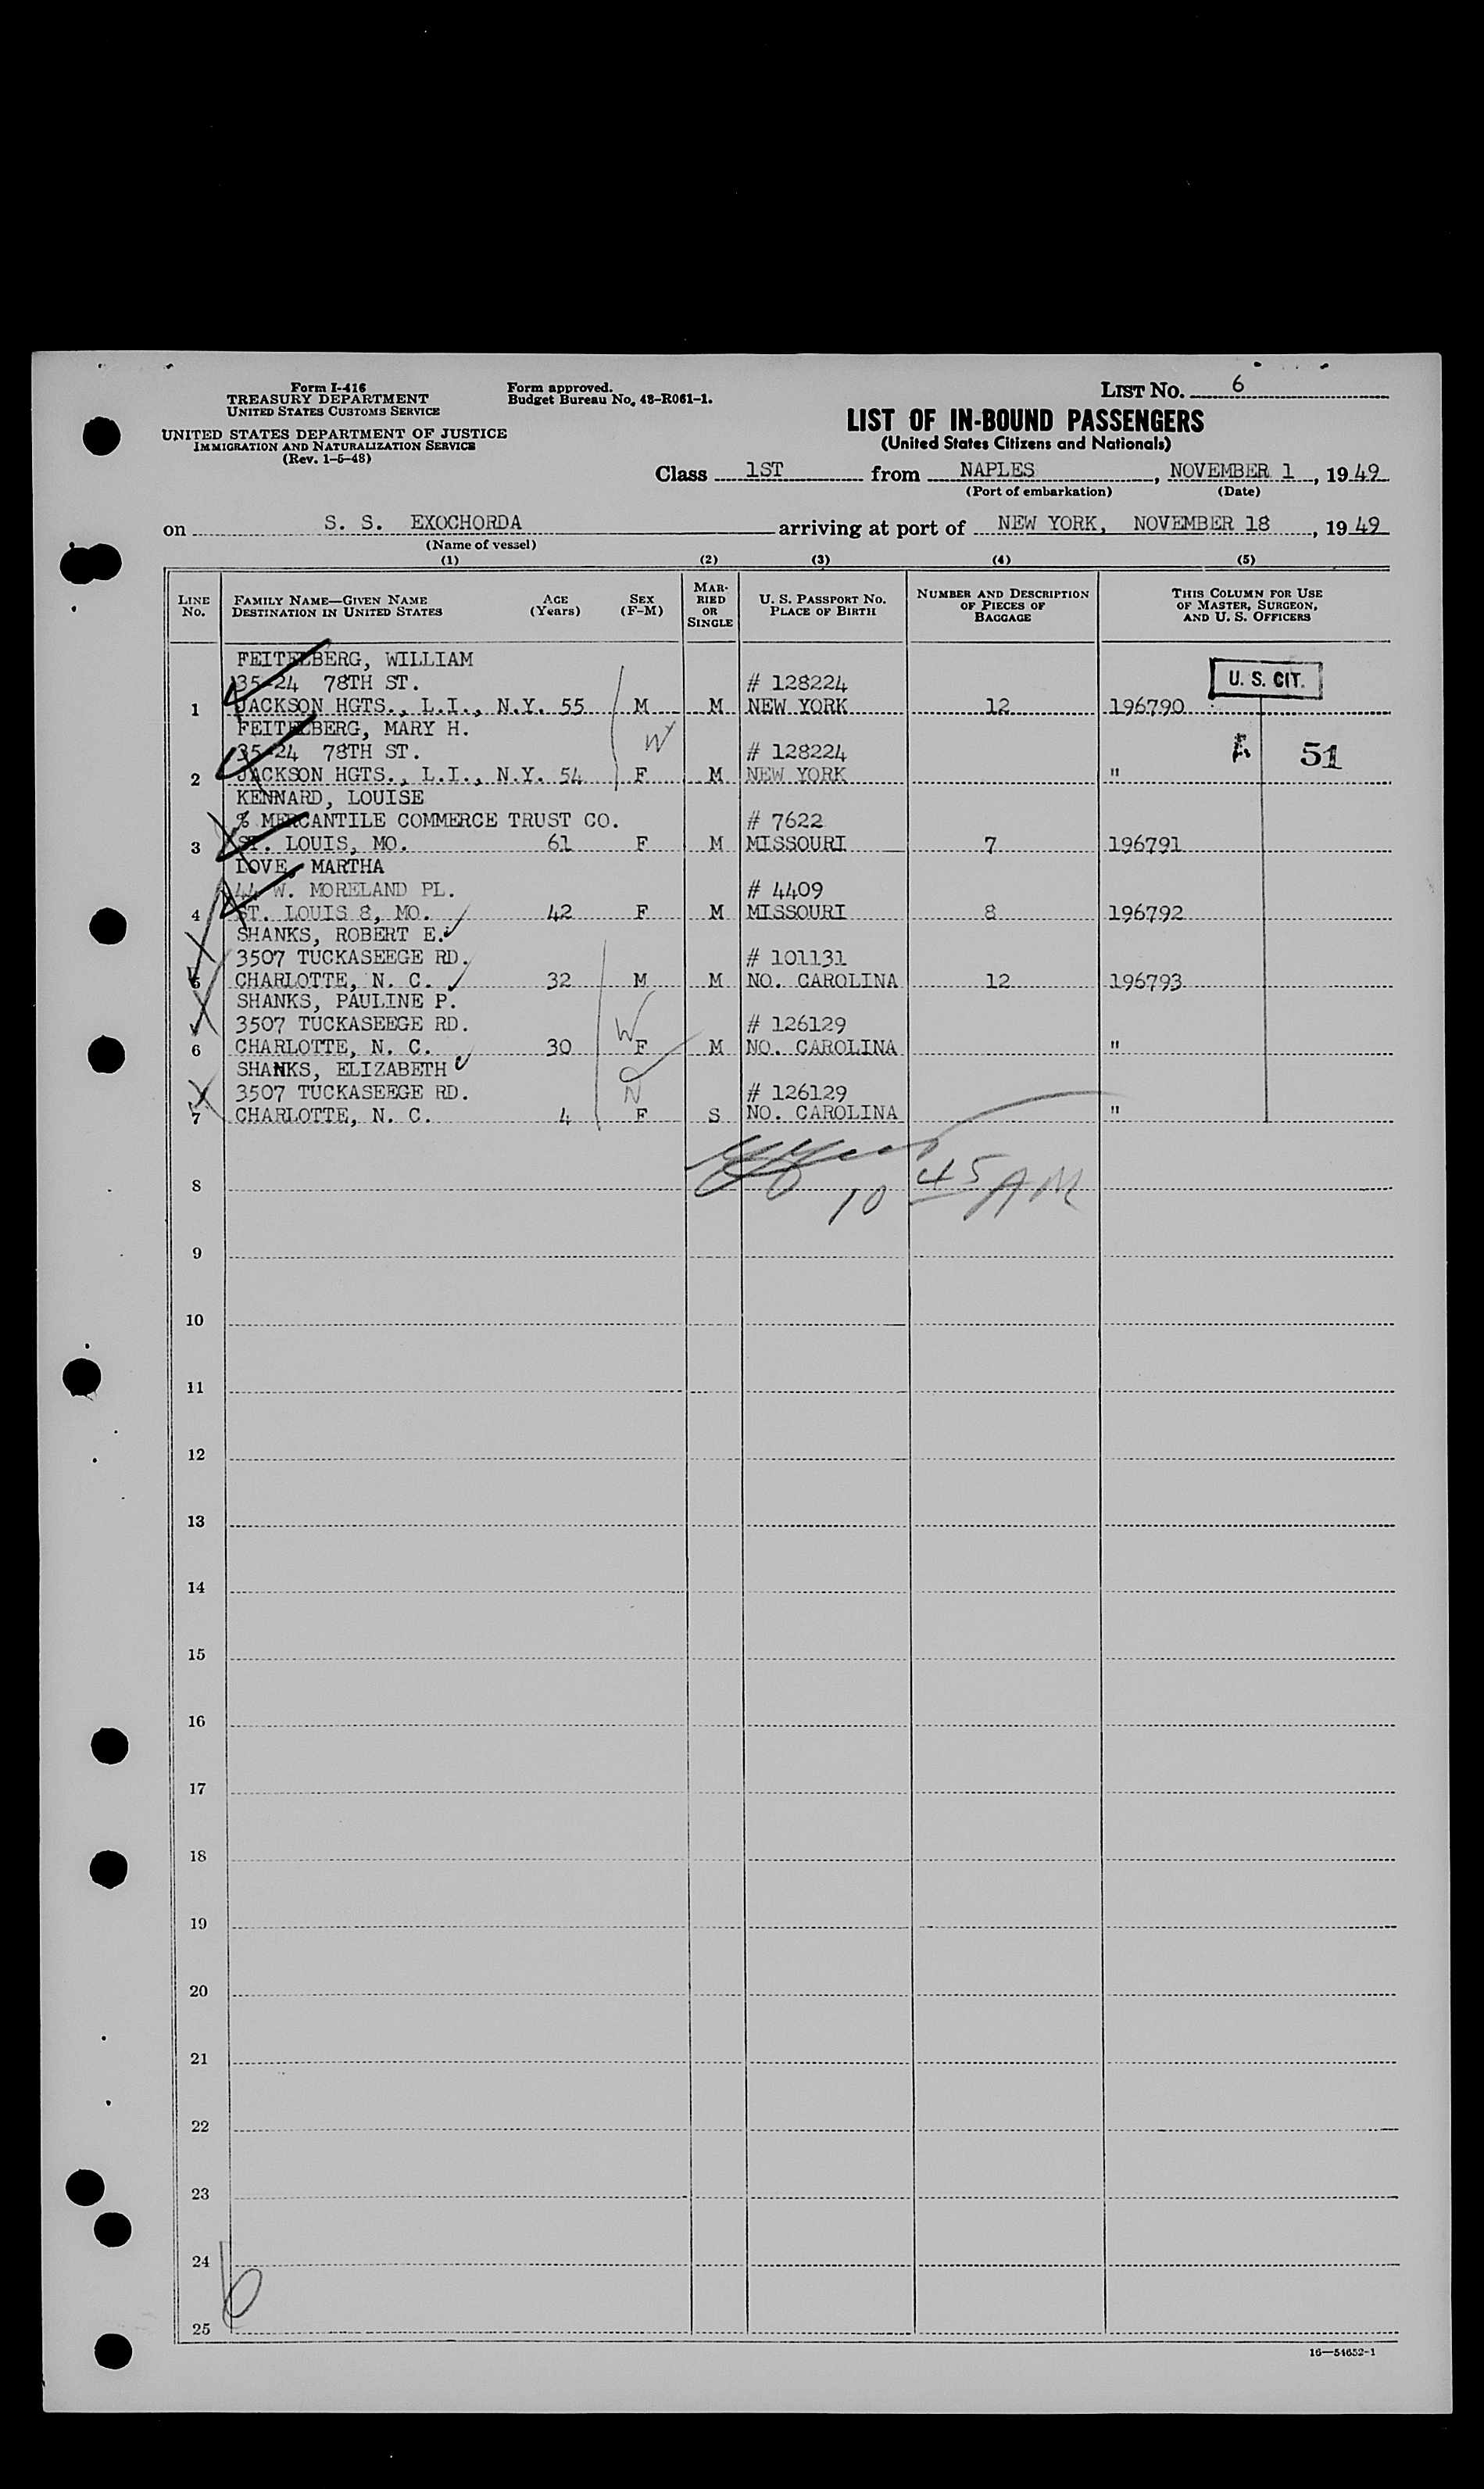 Form I-416
TREASURY DEPARTMENT
UNITED STATES CUSTOMS SERVICE
UNITED STATES DEPARTMENT OF JUSTICE
IMMIGRATION AND NATURALIZATION SERVICE
(Rev. 1-5-48)
Form approved.
Budget Bureau No. 48-R061-1.
LIST NO. 6
LIST OF IN-BOUND PASSENGERS
(United States Citizens and Nationals)
Class 1ST from NAPLES, NOVEMBER 1, 1949
(Port of embarkation) (Date)
on S. S. EXOCHORDA arriving at port of NEW YORK, NOVEMBER 18, 1949
(Name of vessel)
(1) (2) (3) (4) (5)
LINE No. FAMILY NAME—GIVEN NAME DESTINATION IN UNITED STATES AGE (Years) SEX (F-M) MARRIED OR SINGLE U. S. PASSPORT NO. PLACE OF BIRTH NUMBER AND DESCRIPTION OF PIECES OF BAGGAGE THIS COLUMN FOR USE OF MASTER, SURGEON, AND U. S. OFFICERS
FEITELBERG, WILLIAM
35-24 78TH ST. # 128224 U. S. CIT.
1 JACKSON HGTS., L.I., N.Y. 55 M M NEW YORK 12 196790
FEITELBERG, MARY H. W
35-24 78TH ST. # 128224 A 51
2 JACKSON HGTS., L.I., N.Y. 54 F M NEW YORK "
KENNARD, LOUISE
% MERCANTILE COMMERCE TRUST CO. # 7622
3 ST. LOUIS, MO. 61 F M MISSOURI 7 196791
LOVE, MARTHA
44 W. MORELAND PL. # 4409
4 ST. LOUIS 8, MO. 42 F M MISSOURI 8 196792
SHANKS, ROBERT E.
3507 TUCKASEEGE RD. # 101131
5 CHARLOTTE, N. C. 32 M M NO. CAROLINA 12 196793
SHANKS, PAULINE P.
3507 TUCKASEEGE RD. W # 126129
6 CHARLOTTE, N. C. 30 F M NO. CAROLINA "
SHANKS, ELIZABETH
3507 TUCKASEEGE RD. # 126129
7 CHARLOTTE, N. C. 4 F S NO. CAROLINA "
8 10 45 AM
9
10
11
12
13
14
15
16
17
18
19
20
21
22
23
24
6
25
16—54652-1